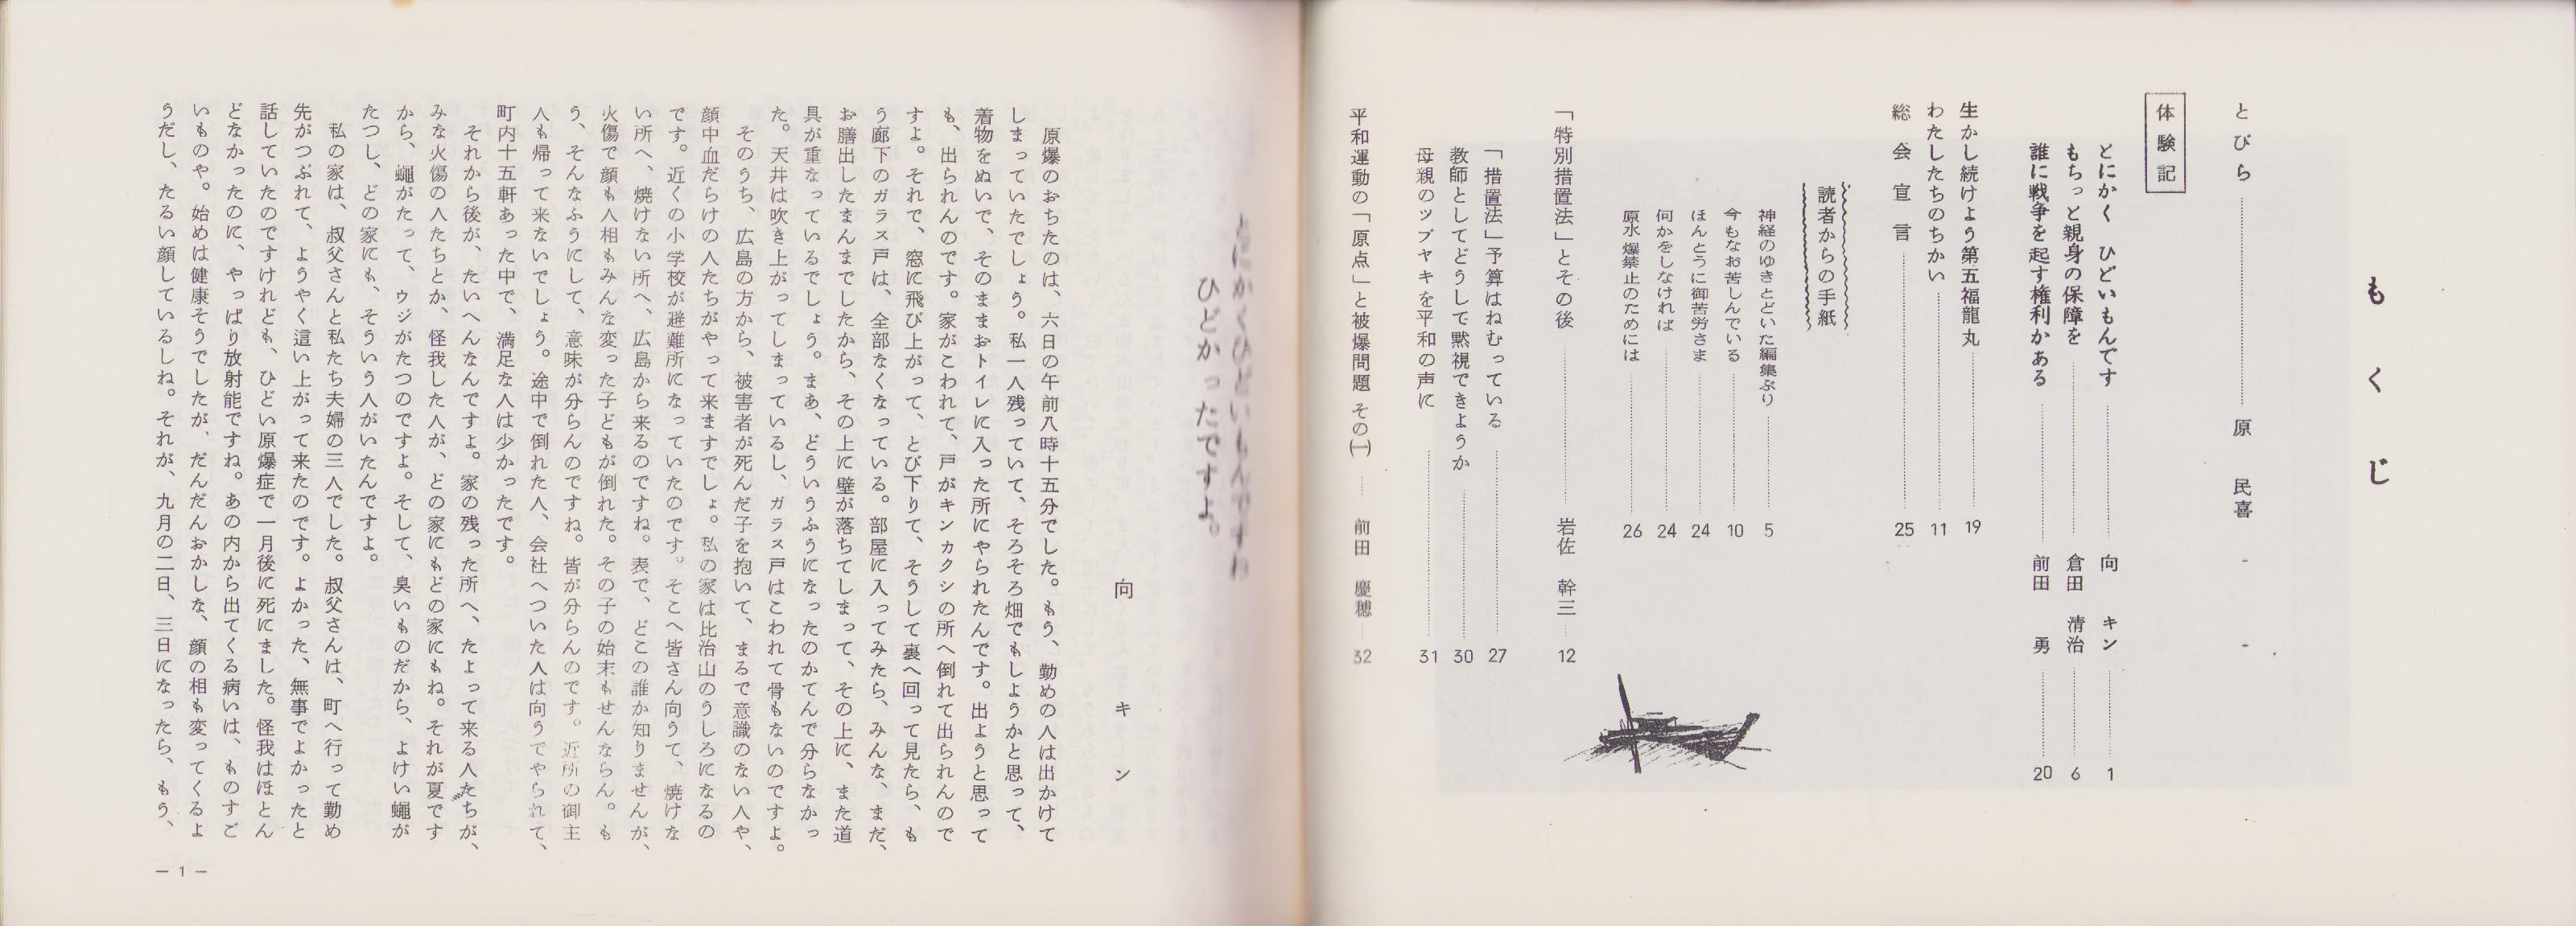 もくじ
とびら 原 民喜
体験記
とにかく ひどいもんです 向 キン 1
もちっと親身の保障を 倉田 清治 6
誰に戦争を起す権利かある 前田 勇 20
生かし続けよう第五福龍丸 19
わたしたちのちかい 11
総会宣言 25
読者からの手紙
神経のゆきとどいた編集ぶり 5
今もなお苦しんでいる 10
ほんとうに御苦労さま 24
何かをしなければ 24
原水爆禁止のためには 26
「特別措置法」とその後 岩佐 幹三 12
「措置法」予算はねむっている 27
教師としてどうして黙視できようか 30
母親のツブヤキを平和の声に 31
平和運動の「原点」と被爆問題 その(一) 前田 慶穂 32
とにかくひどいもんですね
ひどかったですよ。
向 キン
原爆のおちたのは、六日の午前八時十五分でした。もう、勤めの人は出かけて
しまっていたでしょう。私一人残っていて、そろそろ畑でもしようかと思って、
着物をぬいで、そのままおトイレに入った所にやられたんです。出ようと思って
も、出られんのです。家がこわれて、戸がキンカクシの所へ倒れて出られんので
すよ。それで、窓に飛び上がって、とび下りて、そうして裏へ回って見たら、も
う廊下のガラス戸は、全部なくなっている。部屋に入ってみたら、みんな、まだ、
お膳出したまんまでしたから、その上に壁が落ちてしまって、その上に、また道
具が重なっているでしょう。まあ、どういうふうになったのかてんで分らなかっ
た。天井は吹き上がってしまっているし、ガラス戸はこわれて骨もないのですよ。
そのうち、広島の方から、被害者が死んだ子を抱いて、まるで意識のない人や、
顔中血だらけの人たちがやって来ますでしょ。私の家は比治山のうしろになるの
です。近くの小学校が避難所になっていたのです。そこへ皆さん向うて、焼けな
い所へ、焼けない所へ、広島から来るのですね。表で、どこの誰か知りませんが、
火傷で顔も人相もみんな変った子どもが倒れた。その子の始末もせんならん。も
う、そんなふうにして、意味が分らんのですね。皆が分らんのです。近所の御主
人も帰って来ないでしょう。途中で倒れた人、会社へついた人は向うでやられて、
町内十五軒あった中で、満足な人は少かったです。
それから後が、たいへんなんですよ。家の残った所へ、たよって来る人たちが、
みな火傷の人たちとか、怪我した人が、どの家にもどの家にもね。それが夏です
から、蠅がたって、ウジがたつのですよ。そして、臭いものだから、よけい蠅が
たつし、どの家にも、そういう人がいたんですよ。
私の家は、叔父さんと私たち夫婦の三人でした。叔父さんは、町へ行って勤め
先がつぶれて、ようやく這い上がって来たのです。よかった、無事でよかったと
話していたのですけれども、ひどい原爆症で一月後に死にました。怪我はほとん
どなかったのに、やっぱり放射能ですね。あの内から出てくる病いは、ものすご
いものや。始めは健康そうでしたが、だんだんおかしな、顔の相も変ってくるよ
うだし、たるい顔しているしね。それが、九月の二日、三日になったら、もう、
— 1 —